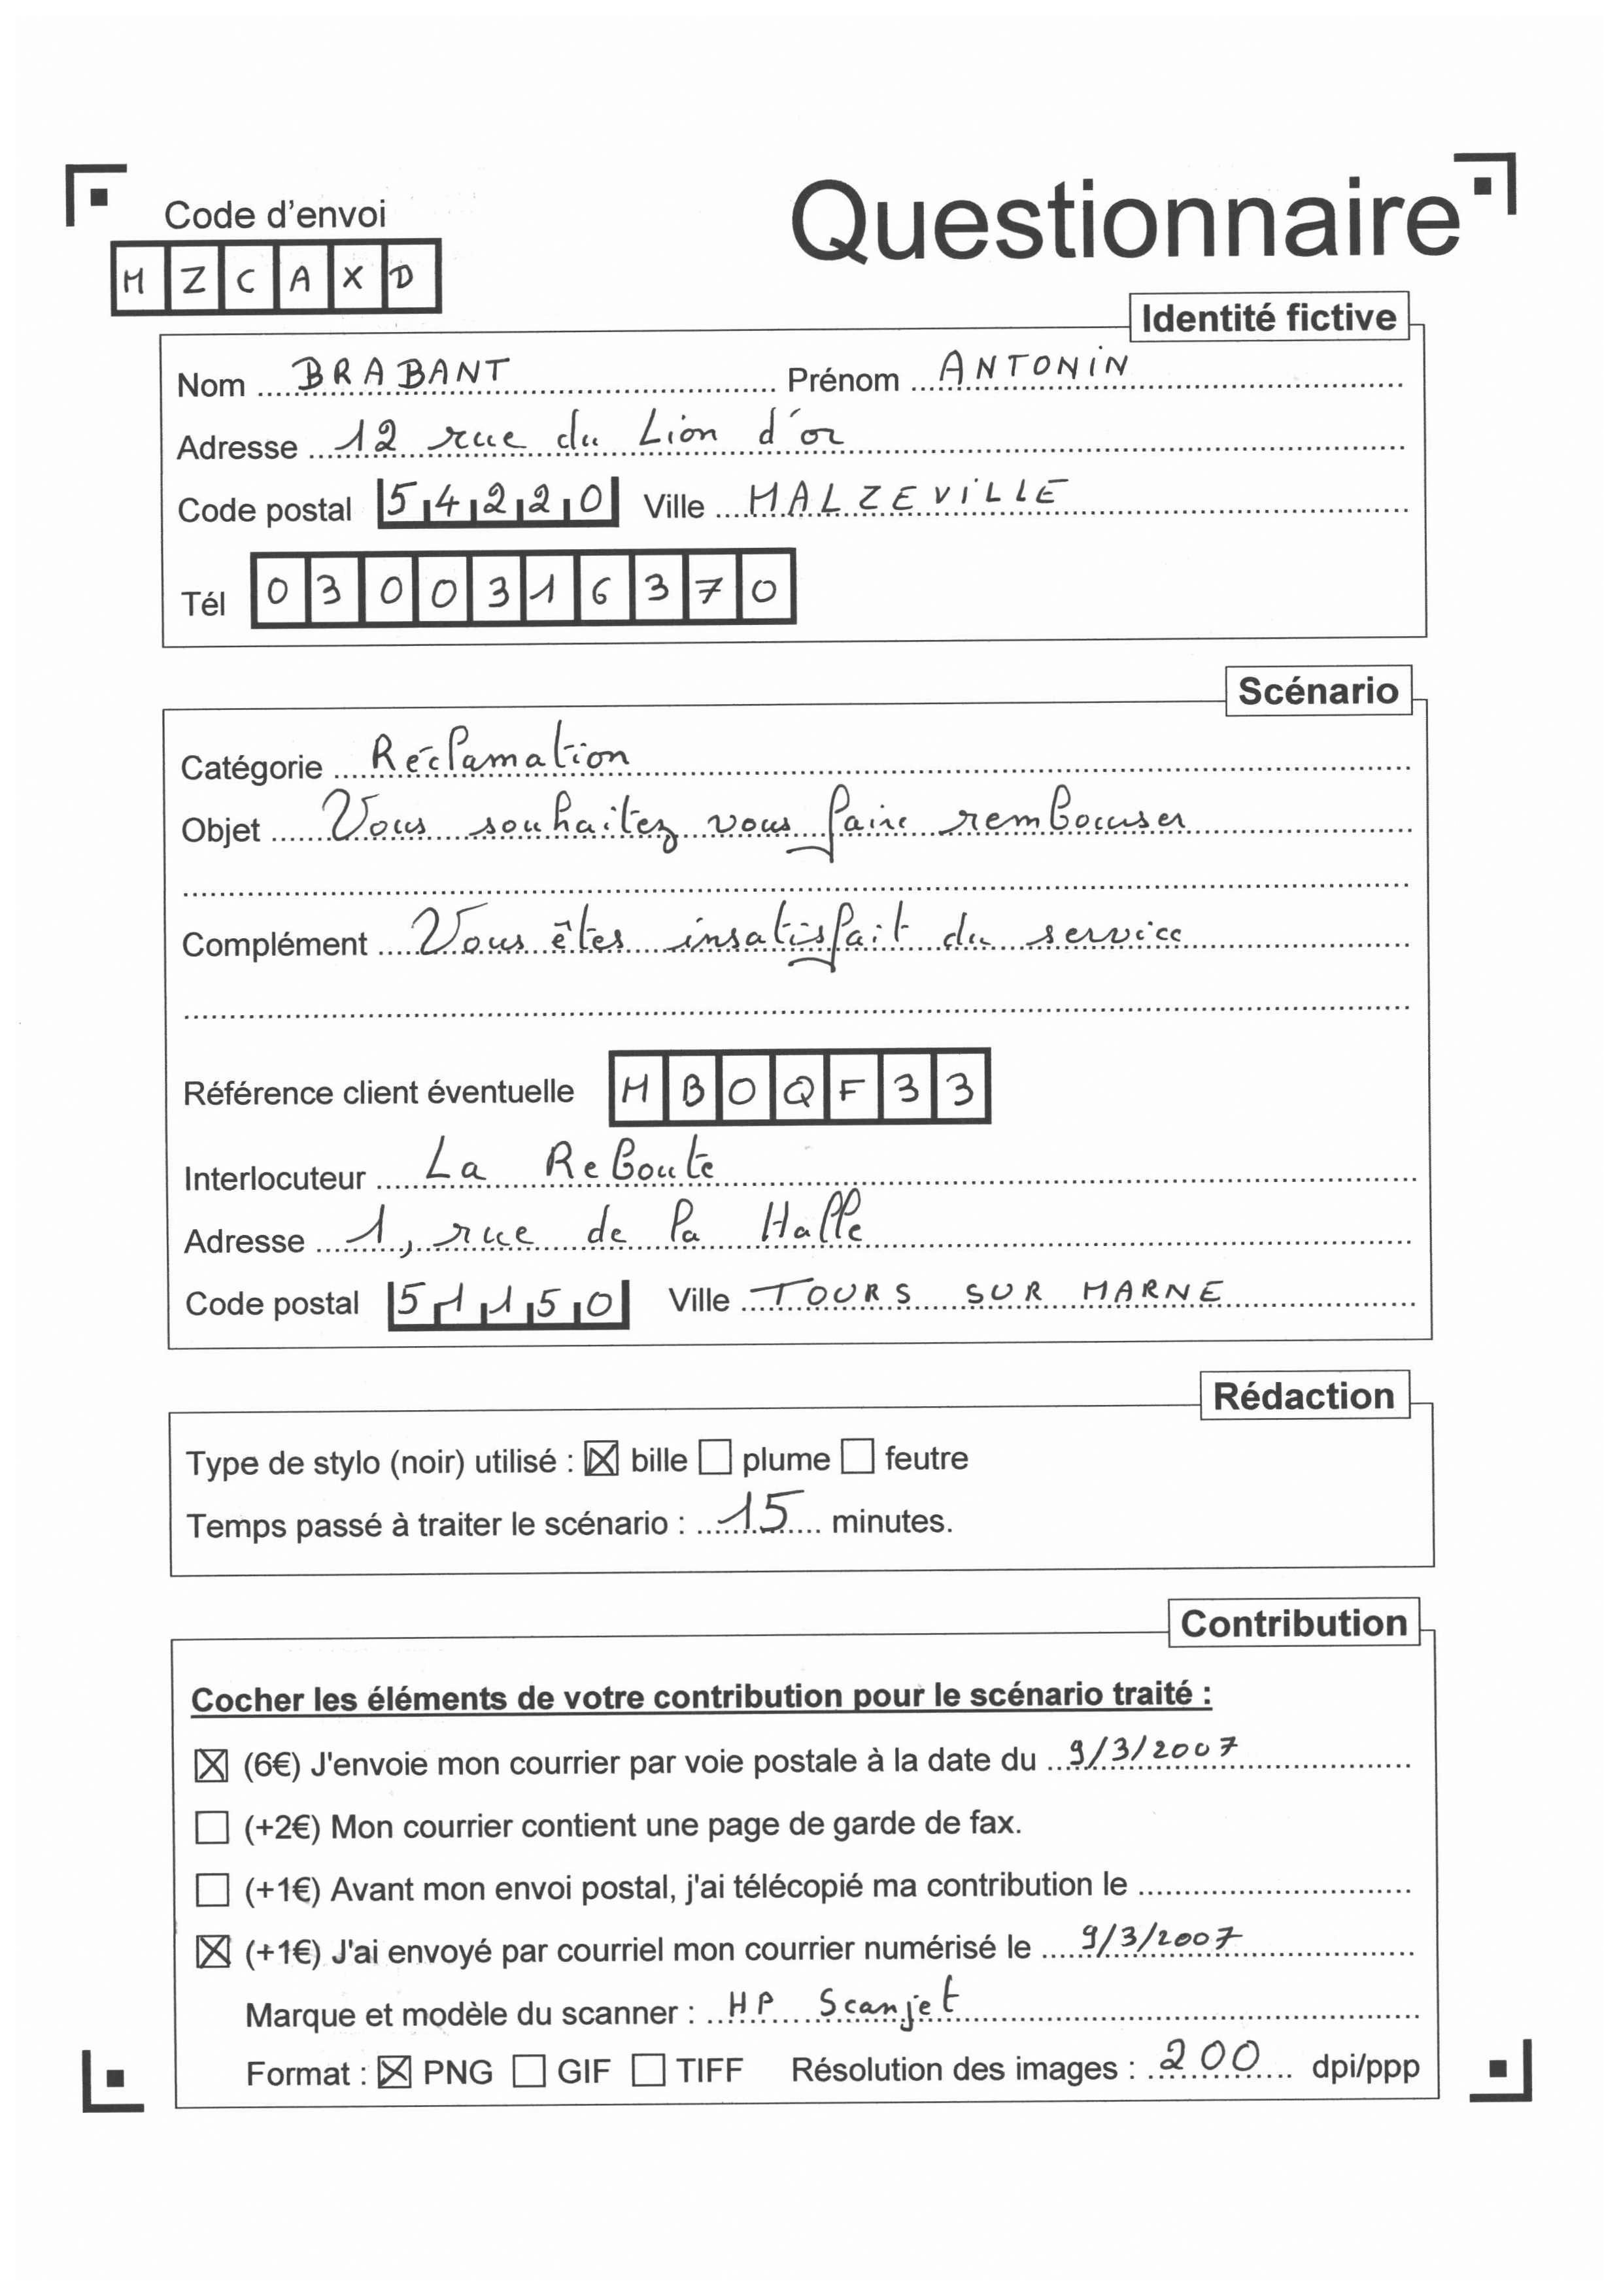 Questionnaire
Code d'envoi
MZCAXD
Identité fictive
Nom BRABANT Prénom ANTONIN
Adresse 12 rue du Lion d'or
Code postal 54220 Ville MALZEVILLE
Tél 0300316370
Scénario
Catégorie Réclamation
Objet Vous souhaitez vous faire rembourser
Complément Vous êtes insatisfait du service
Référence client éventuelle MBOQF33
Interlocuteur La Reboute
Adresse 1, rue de la Halle
Code postal 51150 Ville TOURS SUR MARNE
Rédaction
Type de stylo (noir) utilisé : ☒ bille ☐ plume ☐ feutre
Temps passé à traiter le scénario : 15 minutes.
Contribution
Cocher les éléments de votre contribution pour le scénario traité :
☒ (6€) J'envoie mon courrier par voie postale à la date du 9/3/2007
☐ (+2€) Mon courrier contient une page de garde de fax.
☐ (+1€) Avant mon envoi postal, j'ai télécopié ma contribution le
☒ (+1€) J'ai envoyé par courriel mon courrier numérisé le 9/3/2007
Marque et modèle du scanner : HP Scanjet
Format : ☒ PNG ☐ GIF ☐ TIFF Résolution des images : 200 dpi/ppp